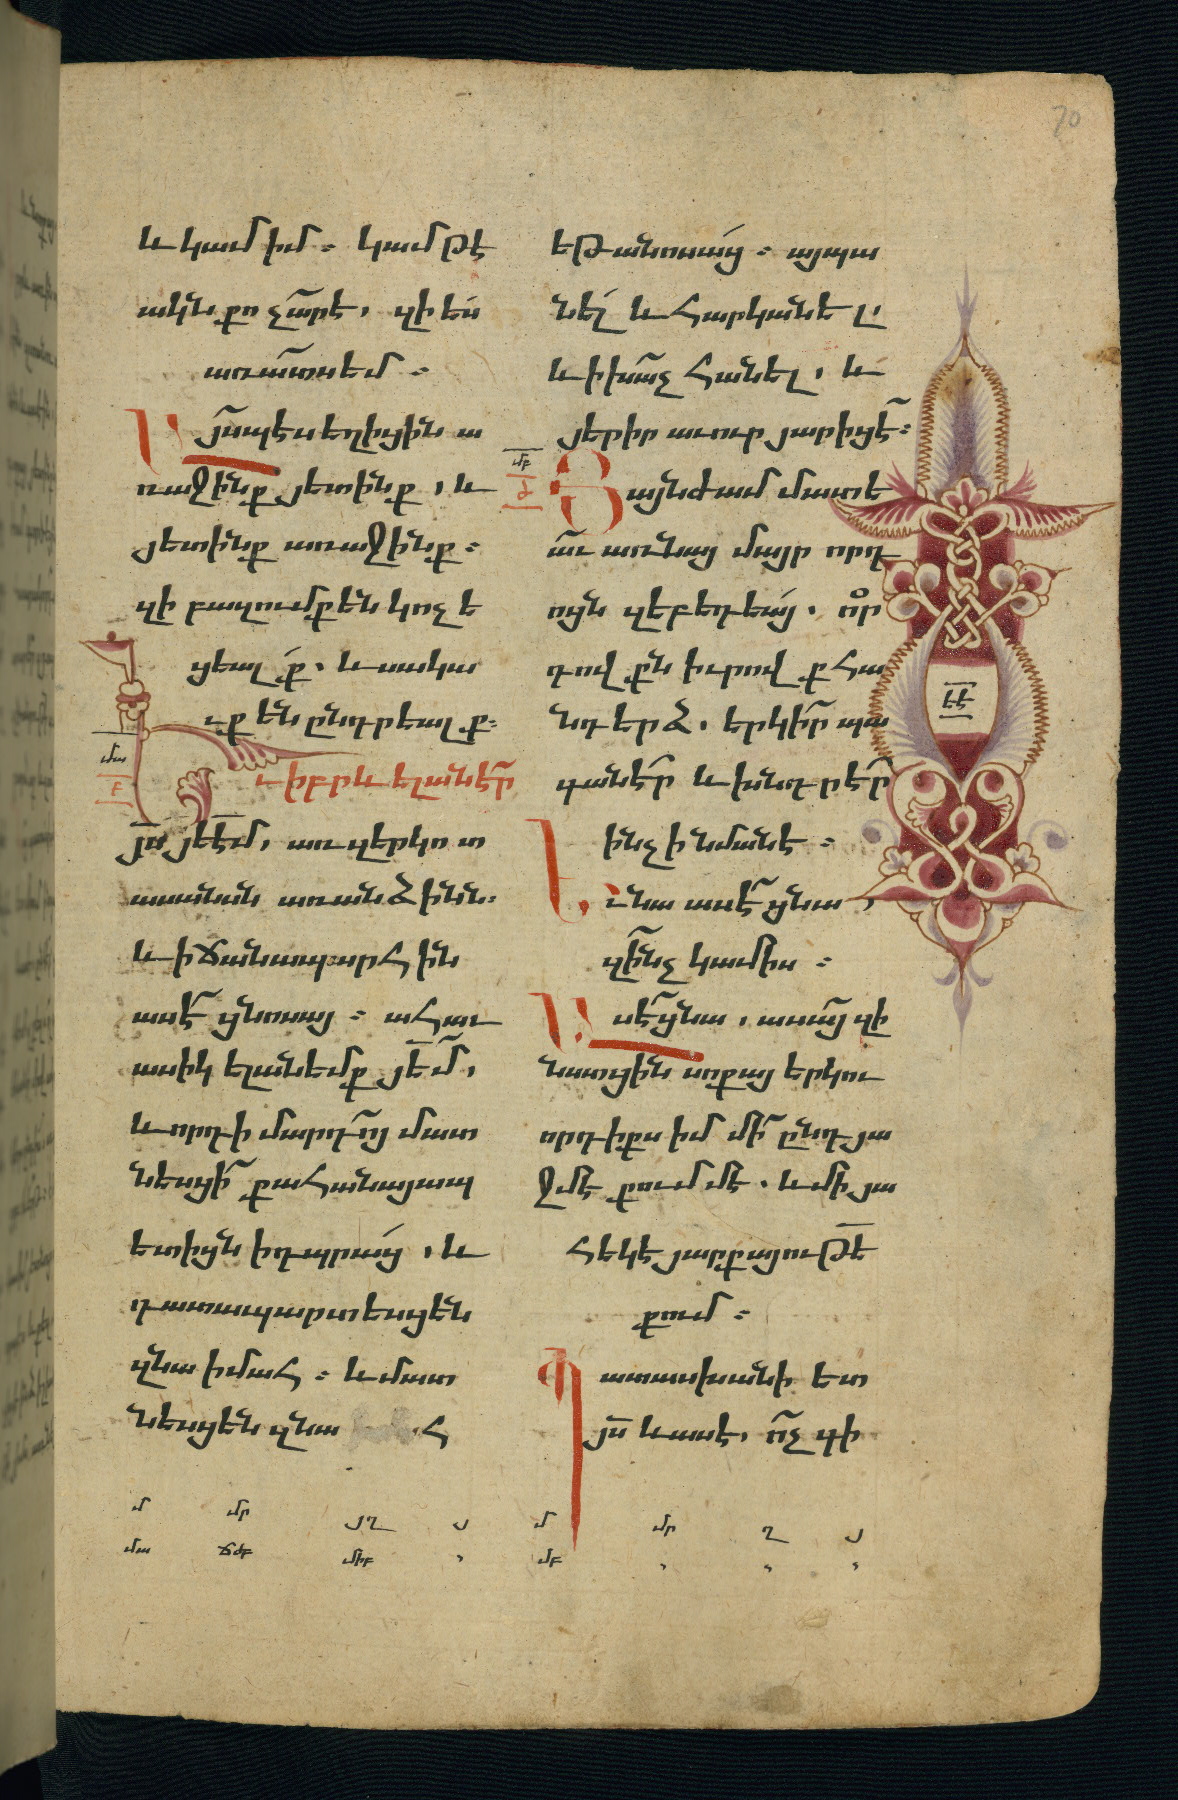 և կամ իմ։ կամ թէ
ակն քո չար է, զի ես
առատս եմ։
Այսպէս եղիցին ա
ռաջինք յետինք, և
յետինք առաջինք։
զի բազումք են կոչե
ցեալք, և սակա
ւք են ընտրեալք։
Եւ իբրև ելանէր
յս յեէմ, առ զերկոտ
ասանսն առանձինն.
և ի ճանապարհին
ասէ ցնոսայ։ ահաւ
ասիկ ելանեմք յեմ,
և որդի մարդոյ մատ
նեսցի քահանայապ
ետիցն ի դպրաց, և
դատապարտեսցեն
զնա ի մահ։ և մատ
նեսցեն զնա հ
եթանոսաց։ այպա
նել և հարկանել,
և ի խաչ հանել, և
յերիր աւուր յարիցէ։
Յայնժամ մատե
աւ առ նայ մայր որդ
ոցն զեբեդեայ. որ
դովքն իւրովք հա
նդերձ. երկիր պա
գանէր և խնդրէր
ինչ ի նմանէ։
Եւ նա ասէ ցնա,
զինչ կամիս։
Ասէ ցնա, ասա զի
նստցին սոքայ երկու
որդիքս իմ մի ընդ յա
ջմէ քումմէ. և մի յա
հեկէ յարքայութե
քում։
Պատասխանի ետ
յս և ասէ, ոչ գի